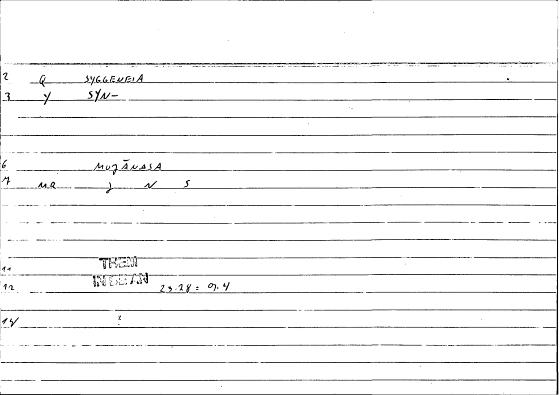 2 Q SYGGENEIA
3 Y SYN-
6 MUJĀNASA
7 MR J N S
11 THEM
12 INDEAN 23.28 = 9.4
14 ?